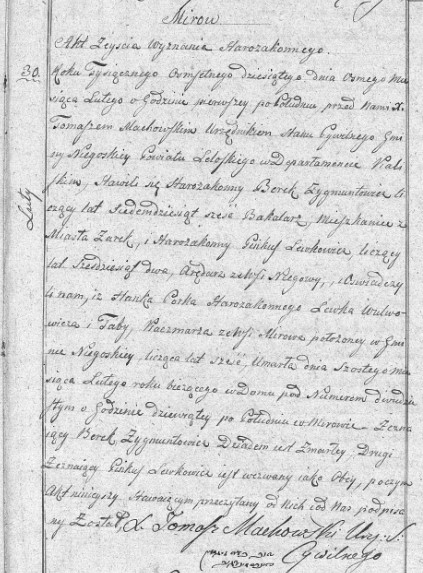 Mirow
Akt Zeyscia Wyznania Starozakonnego.
30. Roku Tysiącznego Osmsetnego dziesiątego dnia Osmego Mie
siąca Lutego o Godzinie pierwszey po Południu, przed Nami X.
Luty
Tomaszem Machowskim Urzędnikiem Stanu Cywilnego Gmi
ny Niegoskiey Powiatu Lelofskiego w Departamencie Kali
skim, Stawili się Starozakonny Berek Zygmuntowicz li
czący lat Siedemdziesiąt szesc Bakalarz, Mieszkaniec z
Miasta Zarek, i Starozakonny Pinkus Lewkowicz liczący
lat Szescdziesiąt dwa, Arędarz zewsi Niegowy, i Oswiadczy
li nam, iz Hanka Corka Starozakonnego Lewka
wicza i Taby, Kaczmarza zewsi Mirowa położoney w Gmi
nie Niegoskiey, licząca lat Szesc, Umarła dnia Szostego mie
siąca Lutego roku bieżącego w Domu pod Numerem dwudzie
stym o Godzinie dziewiątey po Południu w Mirowie. Zezna
iący Berek Zygmuntowicz Dziadem iest Zmarłey Drugi
Zeznaiący Pinkus Lewkowicz iest wezwany iako Obcy, poczym
Akt ninieyszy Stawaiącym przeczytany od Nich i od Nas podpisa
ny Został, X. Tomasz Machowski Urz: S:
Cywilnego